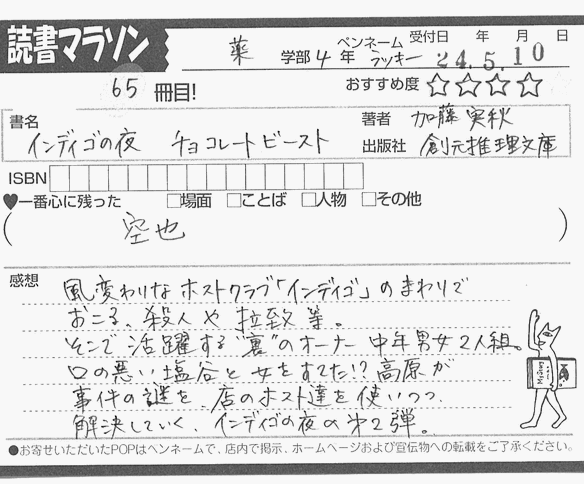 読書マラソン
薬 学部 4 年 ペンネーム ラッキー 受付日 年 月 日 24.5.10
65 冊目! おすすめ度 ☆☆☆☆
書名 インディゴの夜 チョコレートビースト
著者 加藤実秋
出版社 創元推理文庫
ISBN
♥一番心に残った □場面 □ことば □人物 □その他
( 空也 )
感想
風変わりなホストクラブ「インディゴ」のまわりで
おこる、殺人や拉致等。
そこで活躍する"裏"のオーナー中年男女2人組。
口の悪い塩谷と女をすてた!?高原が
事件の謎を、店のホスト達を使いつつ
解決していく、インディゴの夜の第2弾。
●お寄せいただいたPOPはペンネームで、店内で掲示、ホームページおよび宣伝物への転載をご了承ください。